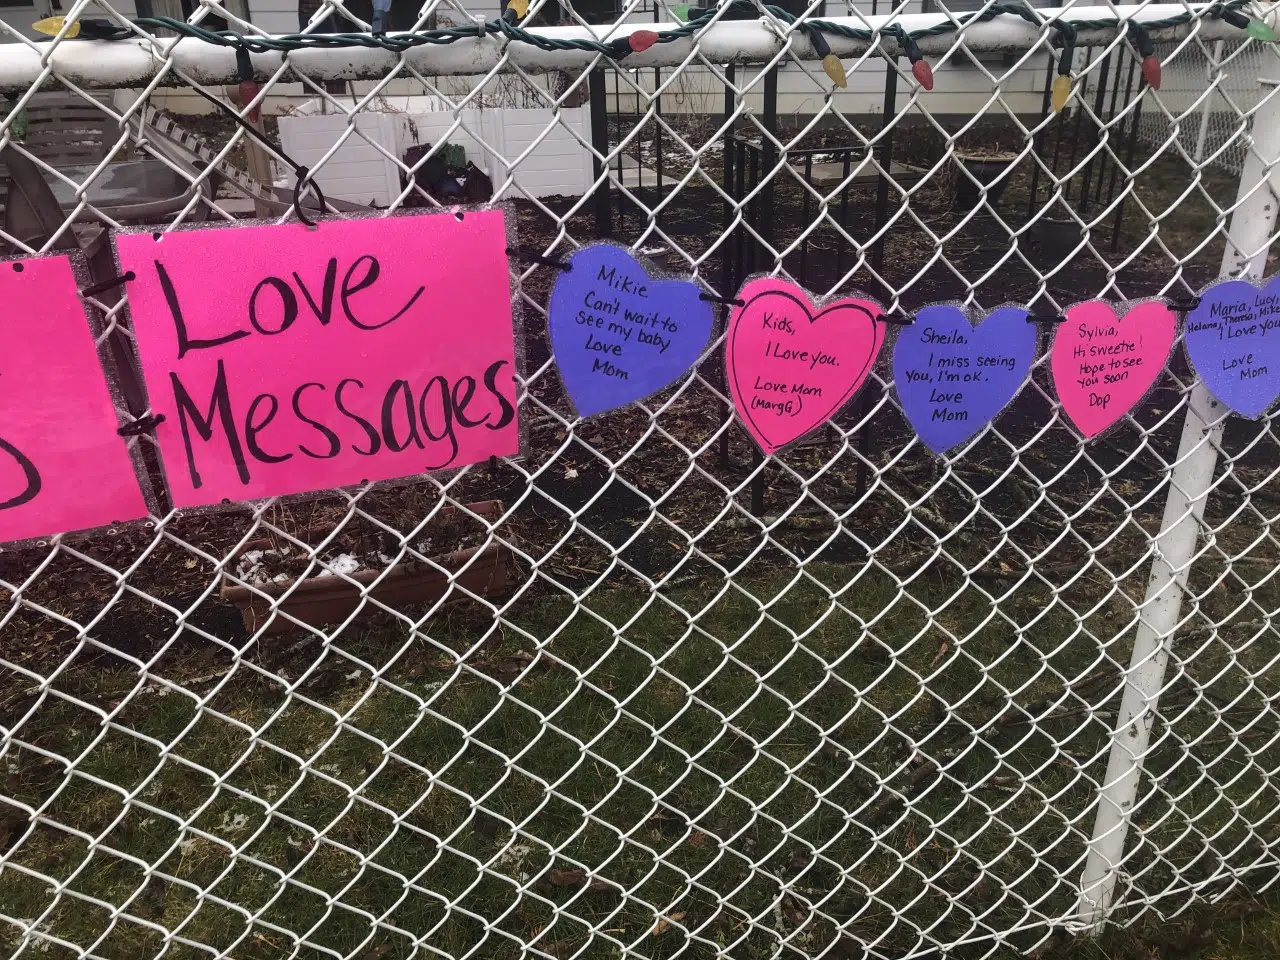 Love
Messages
Mikie
Can't wait to
see my baby
Love
Mom
Kids,
I Love you.
Love Mom
(MargG)
Sheila,
I miss seeing
you, I'm ok.
Love
Mom
Sylvia,
Hi Sweetie!
Hope to see
you soon
Dop
Maria, Lucy,
Helana, Theresa, Mike
I Love you
Love
Mom